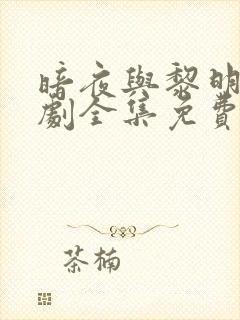 暗夜與黎明
劇全集免費
茶楠